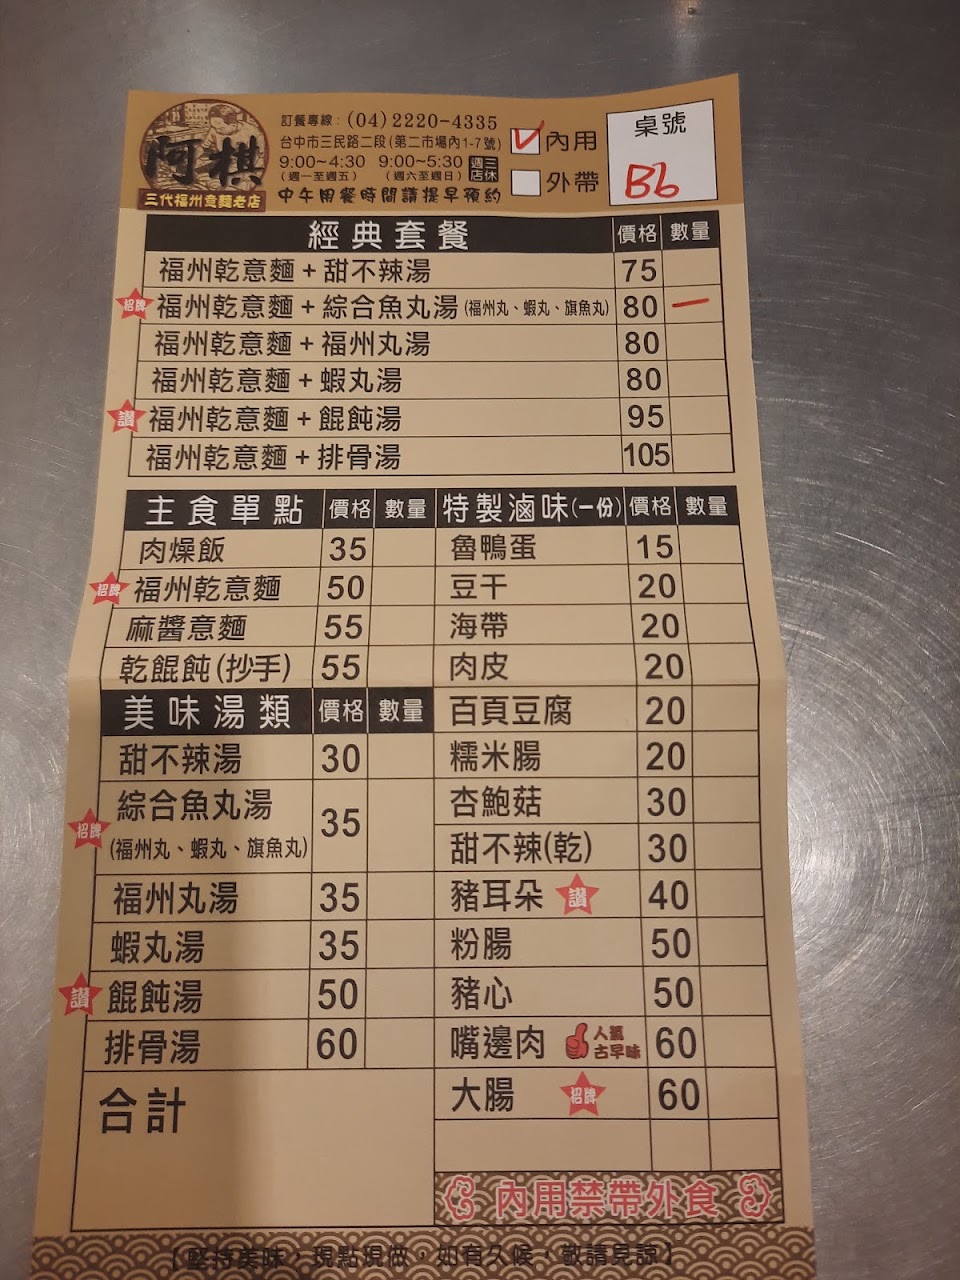 阿棋
三代福州意麵老店
訂餐專線：(04)2220-4335
台中市三民路二段(第二市場內1-7號)
9:00~4:30 9:00~5:30 週三店休
(週一至週五) (週六至週日)
中午用餐時間請提早預約
內用
外帶
桌號
B6
經典套餐 價格 數量
福州乾意麵+甜不辣湯 75
招牌 福州乾意麵+綜合魚丸湯(福州丸、蝦丸、旗魚丸) 80 一
福州乾意麵+福州丸湯 80
福州乾意麵+蝦丸湯 80
讚 福州乾意麵+餛飩湯 95
福州乾意麵+排骨湯 105
主食單點 價格 數量
肉燥飯 35
招牌 福州乾意麵 50
麻醬意麵 55
乾餛飩(抄手) 55
美味湯類 價格 數量
甜不辣湯 30
招牌 綜合魚丸湯 35
(福州丸、蝦丸、旗魚丸)
福州丸湯 35
蝦丸湯 35
讚 餛飩湯 50
排骨湯 60
合計
特製滷味(一份) 價格 數量
魯鴨蛋 15
豆干 20
海帶 20
肉皮 20
百頁豆腐 20
糯米腸 20
杏鮑菇 30
甜不辣(乾) 30
豬耳朵 讚 40
粉腸 50
豬心 50
嘴邊肉 人氣古早味 60
大腸 招牌 60
內用禁帶外食
【堅持美味，現點現做，如有久候，敬請見諒】